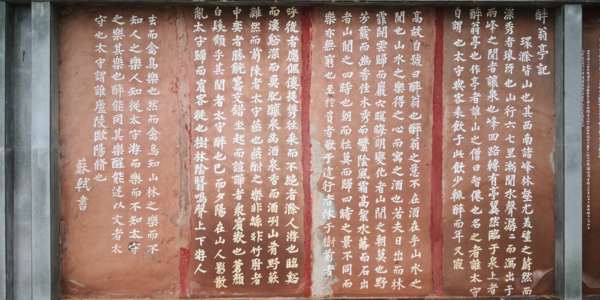 醉翁亭記
環滁皆山也其西南諸峰林壑尤美望之蔚然而
深秀者琅琊也山行六七里漸聞水聲潺潺而瀉出于
兩峰之間者讓泉也峰回路轉有亭翼然臨于泉上者
醉翁亭也作亭者誰山之僧曰智僊也名之者誰太守
自謂也太守與客來飲于此飲少輒醉而年又最
高故自號曰醉翁也醉翁之意不在酒在乎山水之
間也山水之樂得之心而寓之酒也若夫日出而林
霏開雲歸而巖穴暝晦明變化者山間之朝暮也野
芳發而幽香佳木秀而繁陰風霜高潔水落而石出
者山間之四時也朝而往暮而歸四時之景不同而
樂亦無窮也至於負者歌于塗行者休于樹前者
呼後者應傴僂提攜往來而不絕者滁人游也臨谿
而漁谿深而魚肥釀泉為酒泉香而酒洌山肴野蔌
雜然而前陳者太守宴也宴酣之樂非絲非竹射者
中奕者勝觥籌交錯坐起而諠譁者衆賓歡也蒼顏
白髮頹乎其間者太守醉也已而夕陽在山人影散
亂太守歸而賓客從也樹林陰翳鳴聲上下游人
去而禽鳥樂也然而禽鳥知山林之樂而不
知人之樂人知從太守游而樂而不知太守
之樂其樂也醉能同其樂醒能述以文者太
守也太守謂誰廬陵歐陽脩也
蘇軾書